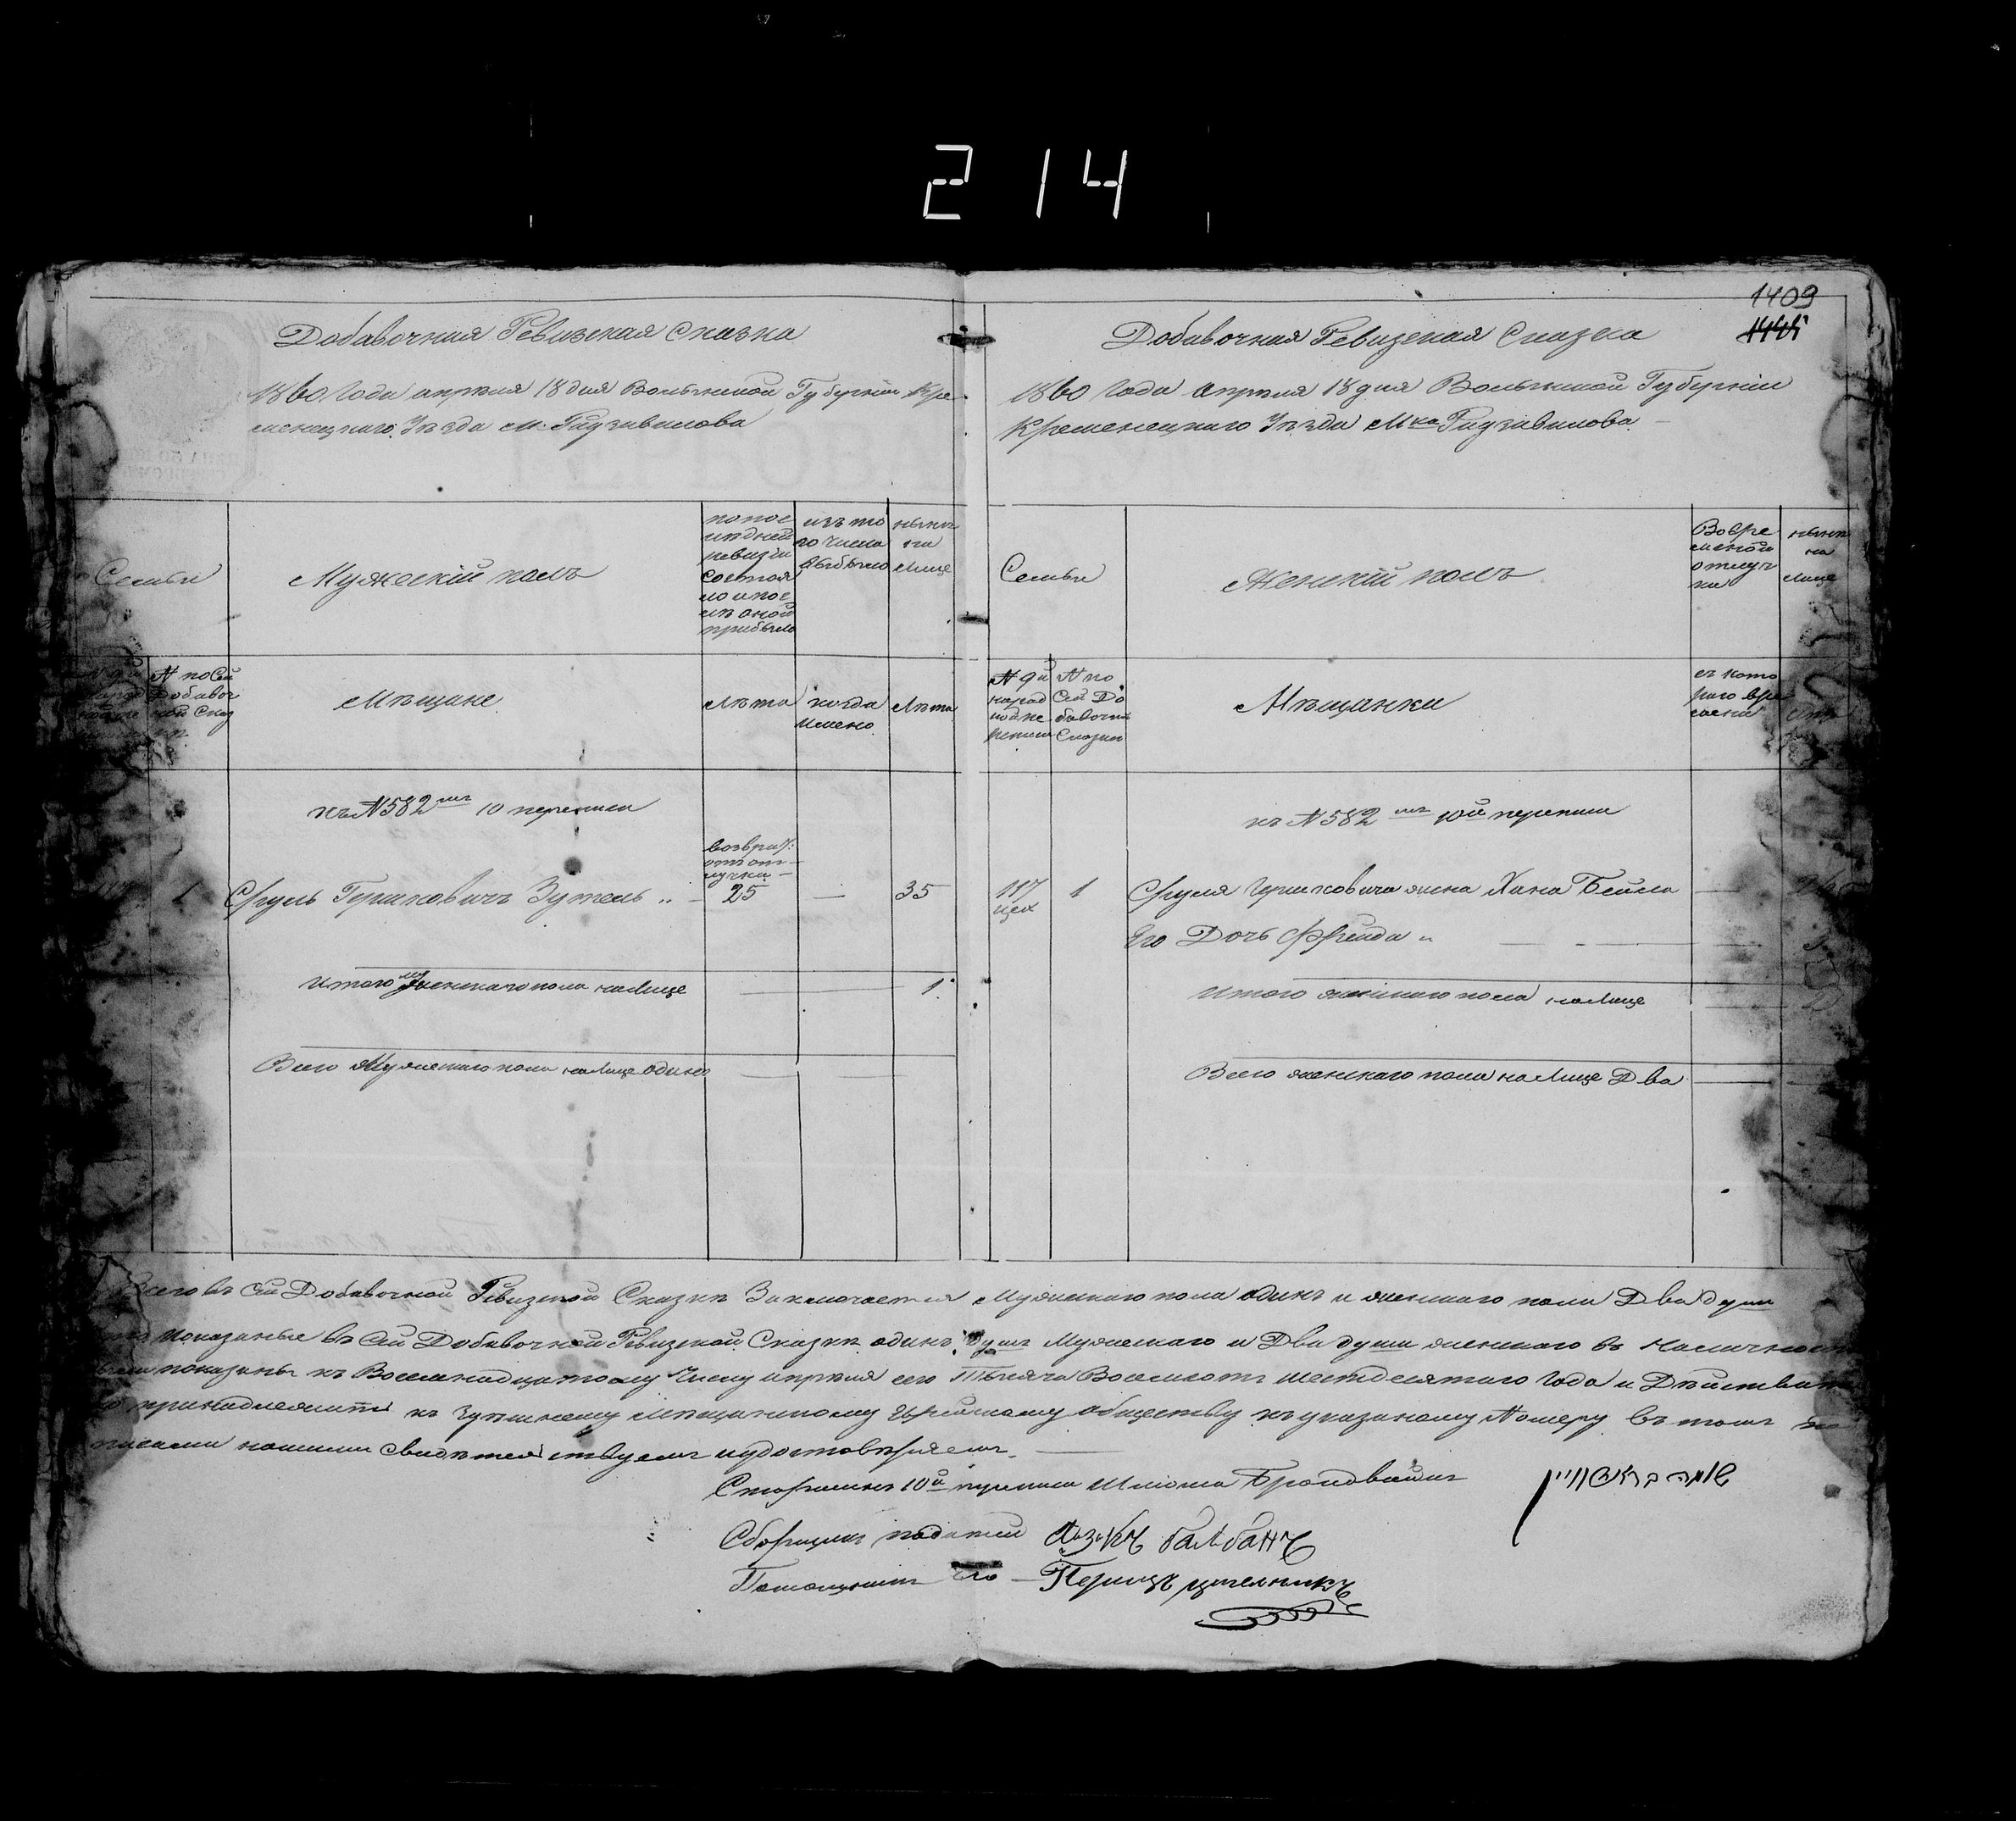 214
1409
Добавочная Ревизская Сказка
1860 Года апреля 18 дня Волынской Губернии Кре
менецкаго Уезда м. Радзивилова
Семьи
Мужеский полъ
по пос
ледней
ревизіи
состоя
ло и пос
ле оной
прибыло
изъ то
го числа
выбыло
ныне
на
лице
№ по сей
Добавоч
ной Сказ
Мещане
Лета
когда
имено
Лета
къ № 582 10 переписи
возврат:
отъ от
лучки
1 Сруль Гершковичъ Зутель 25 — 35
Итого мужескаго пола на Лице 1
Всего Мужескаго пола на Лице один
Добавочная Ревизская Сказка
1860 Года Апреля 18 дня Волынской Губернии
Кременецкаго Уезда Мка Радзивилова
Семьи
Женский полъ
Вовре
менной
отлуч
ки
ныне
на
лице
№ 9й
народ
ной пе
реписи
№ по
Сей До
бавочной
Сказки
Мещанки
съ кото
раго вре
мени
къ № 582 10й переписи
117 1 Сруля Гершковича жена Хана Бейла
цех
Его Дочь Фрейда
Итого женскаго пола на Лице
Всего женскаго пола на Лице Два
Всего въ сей Добавочной Ревизской Сказке Заключается Мужескаго пола один и женскаго пола Два души
показанные въ Сей Добавочной Ревизской Сказке одинъ душъ Мужескаго и Два души женскаго въ Наличности
показаны къ Восемнадцатому Числу апреля сего Тысяча Восемьсотъ шестдесятаго Года и Действительно
принадлежатъ къ здешнему мещанскому Еврейскому обществу къ указаному Номеру въ томъ по
писами нашими свидетельствуемъ и удостоверяемъ
Старшина 10й переписи Шлиома Бройдвайнъ
Сборщикъ податей Айзикъ балбанъ
Помощникъ его Перицъ